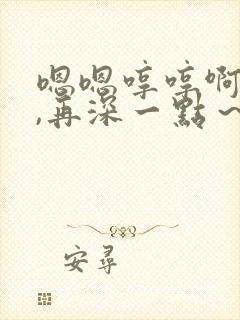 嗯嗯哼哼啊
,再深一點~
安尋